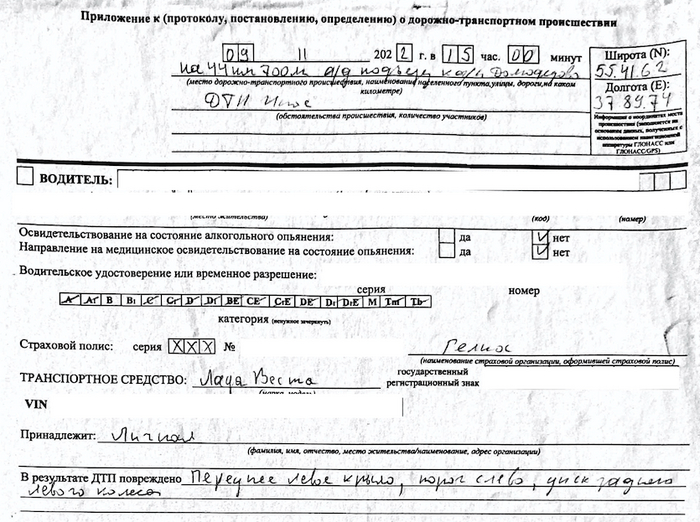 Приложение к (протоколу, постановлению, определению) о дорожно-транспортном происшествии
09 11 2022 г. в 15 час. 00 минут
на 44 км 700 м а/д подъезд к а/п Домодедово
(место дорожно-транспортного происшествия, наименование населенного пункта, улицы, дороги, на каком километре)
ДТП Иное
(обстоятельства происшествия, количество участников)
Широта (N):
55.41.62
Долгота (E):
37 89.74
Информация о координатах места происшествия (заполняется на основании данных, полученных с использованием навигационной аппаратуры ГЛОНАСС или ГЛОНАСС/GPS)
ВОДИТЕЛЬ:
(место жительства) (код) (номер)
Освидетельствование на состояние алкогольного опьянения: да нет
Направление на медицинское освидетельствование на состояние опьянения: да нет
Водительское удостоверение или временное разрешение:
серия номер
A A1 B B1 C C1 D D1 BE CE C1E DE D1 D1E M Tm Tb
категория (ненужное зачеркнуть)
Страховой полис: серия XXX № Гелиос
(наименование страховой организации, оформившей страховой полис)
ТРАНСПОРТНОЕ СРЕДСТВО: Лада Веста государственный регистрационный знак
VIN
Принадлежит: Личная
(фамилия, имя, отчество, место жительства/наименование, адрес организации)
В результате ДТП повреждено Переднее левое крыло, порог слево, диск заднего
левого колеса